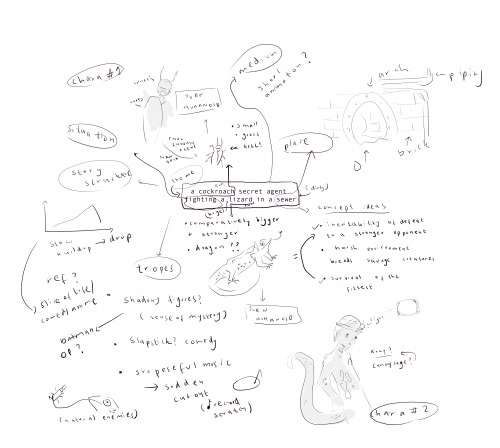 chara #1
medium
short
animation?
TURN
HUMANOID
arch
piping
brick
situation
story
structure
theme
• small
• gross
place
a cockroach secret agent
fighting a lizard in a sewer
(bigger)
(dirty)
• comparatively bigger
+ stronger
• dragon??
concept ideas
inevitability of defeat
to a stronger opponent
• harsh environment
breeds savage creatures
• survival of the
fittest
slow
buildup → drop
tropes
ref?
slice of life/
batman
OP?
• shadowy figures?
(sense of mystery)
• slapstick? comedy
• suspenseful music
→ sudden
cut out
(record
scratch)
TURN
HUMANOID
light
King?
Language?
(natural enemies)
chara #2